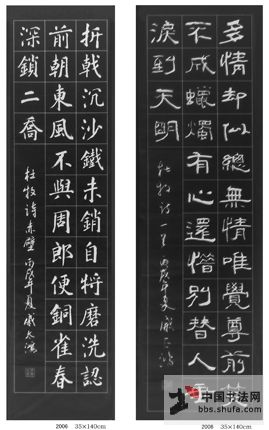 折戟沉沙鐵未銷自將磨洗認
前朝東風不與周郎便銅雀春
深鎖二喬
杜牧詩赤壁 丙戌年夏
2006 35×140cm
多情却似總無情唯覺尊前笑
不成蠟燭有心還惜別替人垂
淚到天明
杜牧詩一首 丙戌年夏
2006 35×140cm
中国书法网
bbs.shufa.com